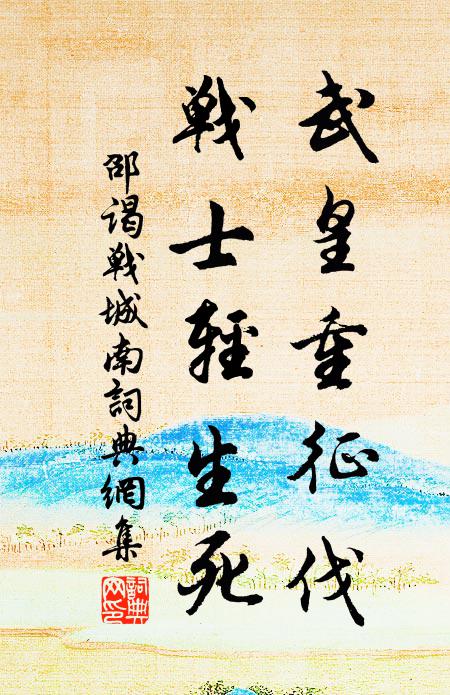 武皇重征伐
戰士輕生死
邵谒戰城南詞典網集
詞典网印